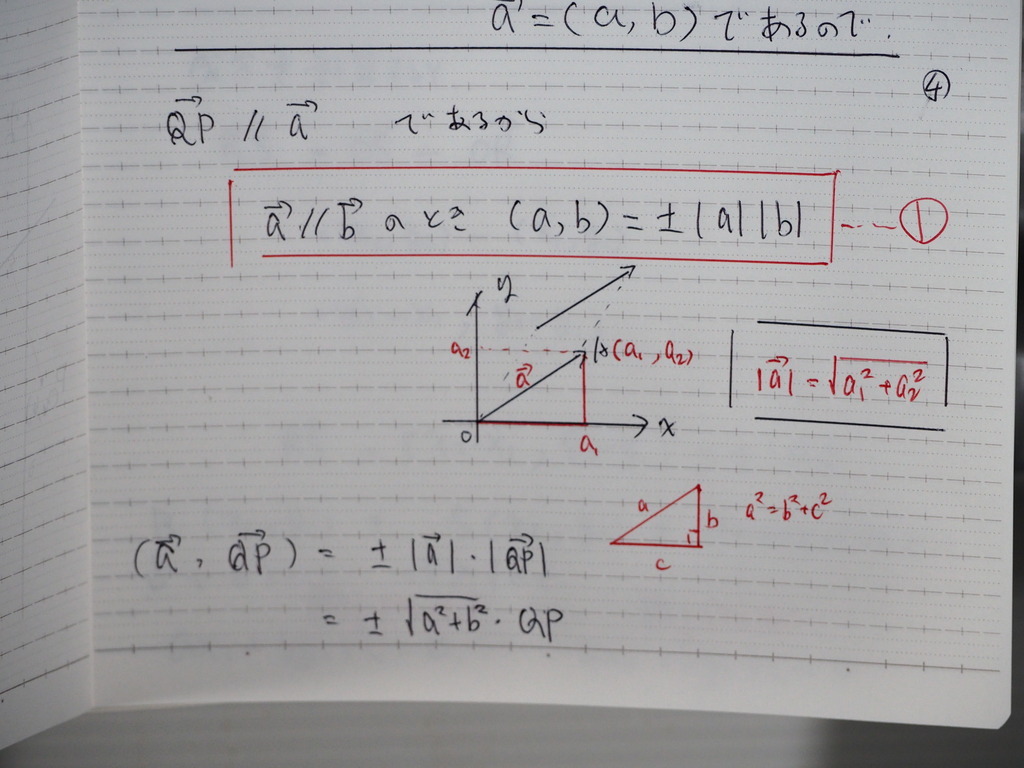 a⃗ = (a, b) であるので.
④
QP⃗ // a⃗ であるから
a⃗ // b⃗ のとき (a, b) = ± |a| |b| ---①
y
a₂ A(a₁, a₂)
a⃗
|a⃗| = √(a₁² + a₂²)
0 x
a₁
a b a² = b² + c²
c
(a⃗, QP⃗) = ± |a⃗| · |QP⃗|
= ± √(a² + b²) · QP